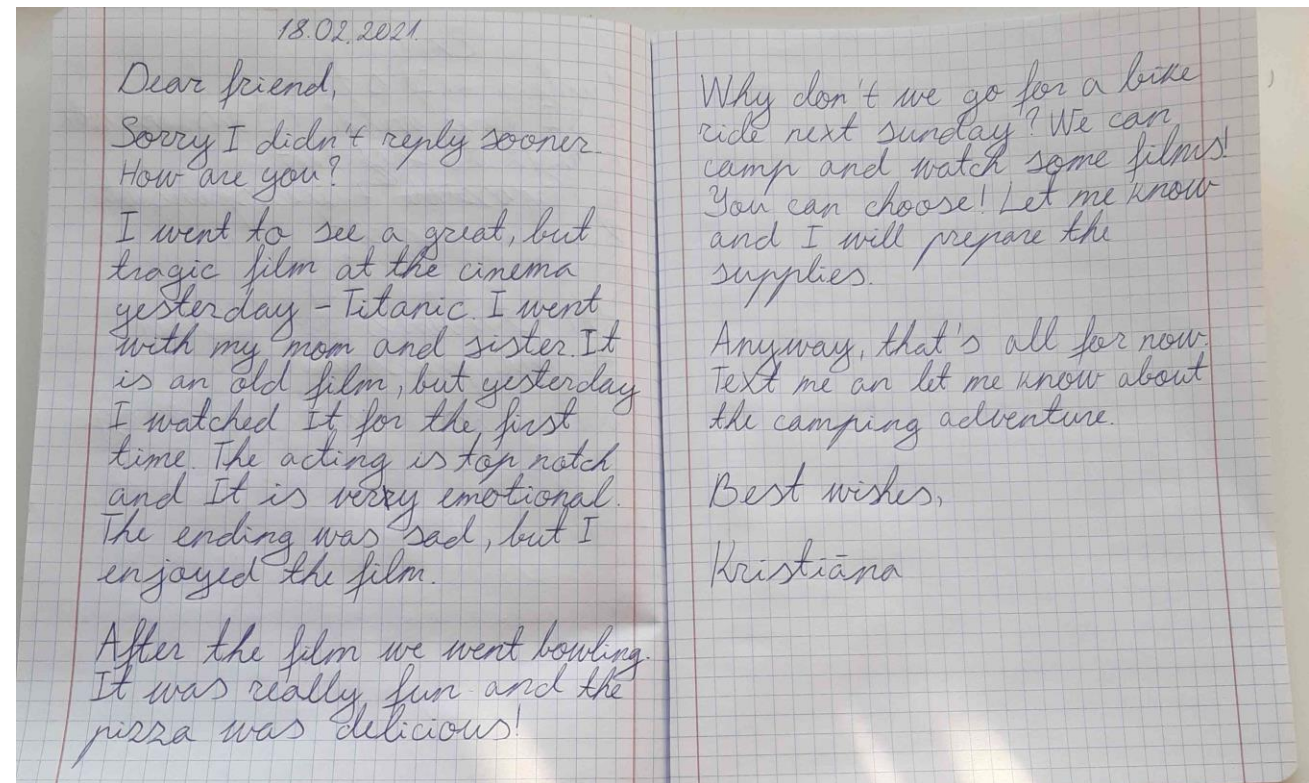 18.02.2021.
Dear friend,
Sorry I didn't reply sooner.
How are you?
I went to see a great, but
tragic film at the cinema
yesterday – Titanic. I went
with my mom and sister. It
is an old film, but yesterday
I watched It for the first
time. The acting is top notch
and It is verry emotional.
The ending was sad, but I
enjoyed the film.
After the film we went bowling.
It was really fun and the
pizza was delicious!
Why don't we go for a bike
ride next sunday? We can
camp and watch some films!
You can choose! Let me know
and I will prepare the
supplies.
Anyway, that's all for now.
Text me an let me know about
the camping adventure.
Best wishes,
Kristiāna